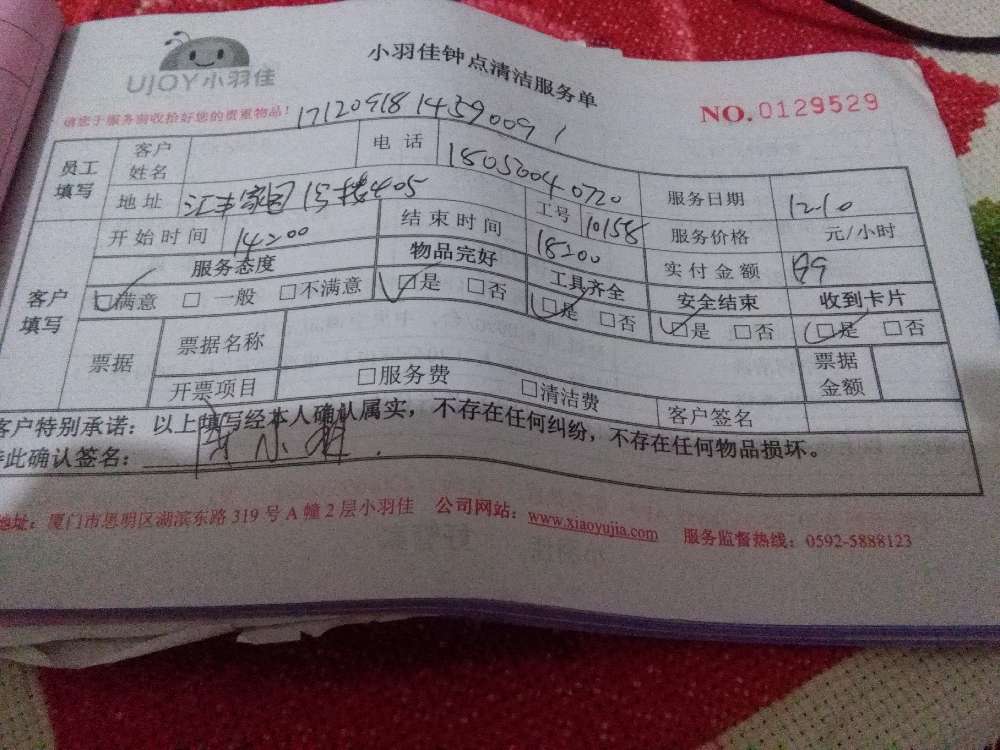 UJOY小羽佳
小羽佳钟点清洁服务单
NO.0129529
请您于服务前收拾好您的贵重物品！
员工填写 客户姓名 电话 服务日期 12.10
地址 汇丰家园 405 工号 10158 服务价格 元/小时
开始时间 14:00 结束时间 18:00 实付金额
客户填写 服务态度 物品完好 工具齐全 安全结束 收到卡片
□满意 □一般 □不满意 □是 □否 □是 □否 □是 □否 □是 □否
票据 票据名称 票据金额
开票项目 □服务费 □清洁费 客户签名
客户特别承诺：以上填写经本人确认属实，不存在任何纠纷，不存在任何物品损坏。
此确认签名：
地址：厦门市思明区湖滨东路 319 号 A 幢 2 层小羽佳 公司网站：www.xiaoyujia.com 服务监督热线：0592-5888123